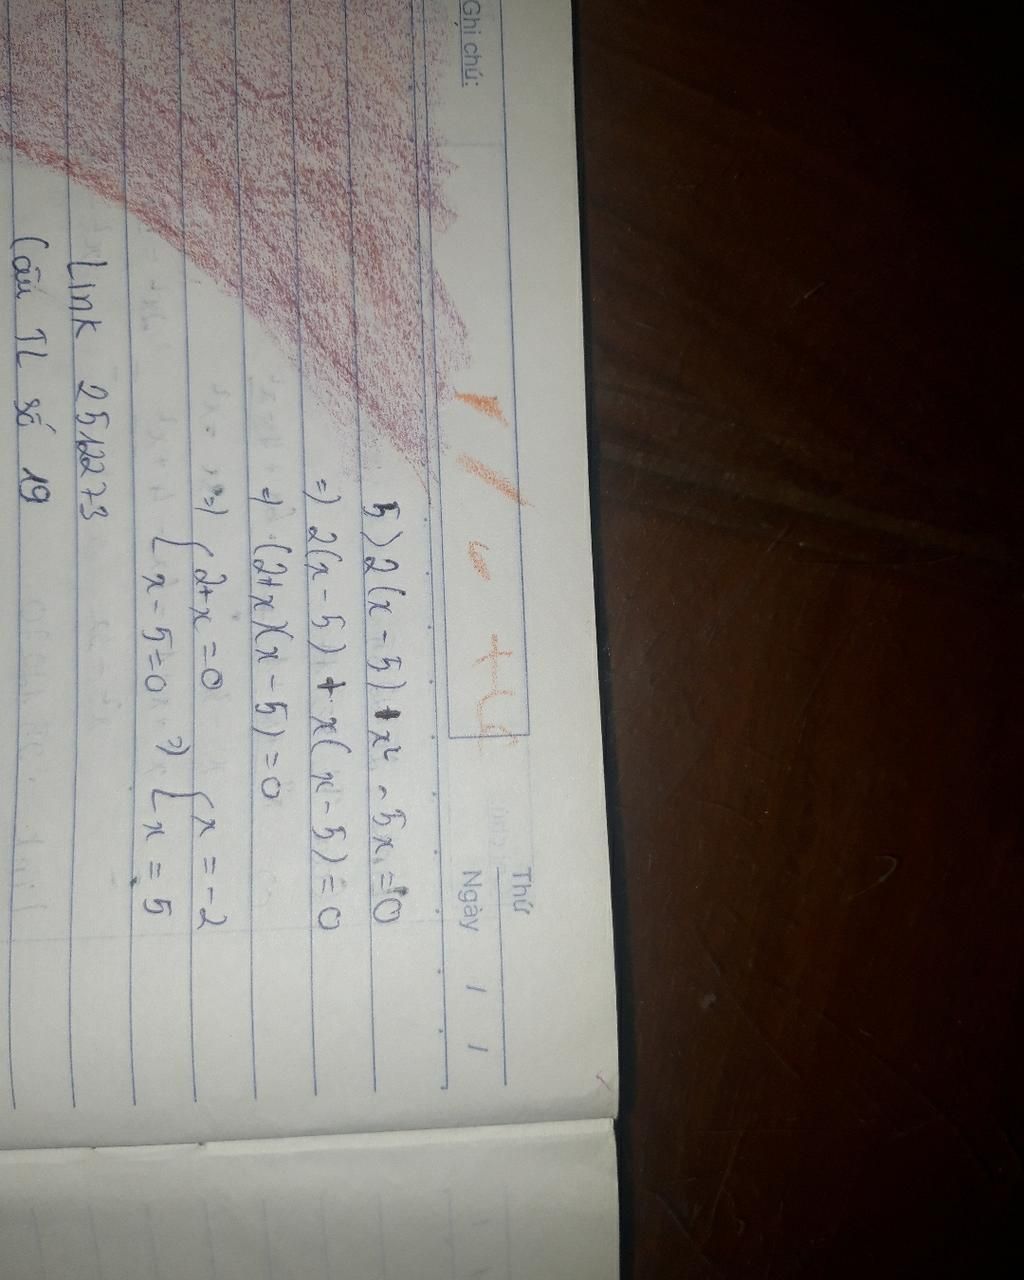 Thứ
Ghi chú:
Ngày / /
5) 2(x - 5) + x² - 5x = 0
=) 2(x - 5) + x(x - 5) = 0
=) (2+x)(x - 5) = 0
=) { 2+x = 0 { x = -2
{ x - 5 = 0 =) { x = 5
Link 2512273
Câu TL số 19